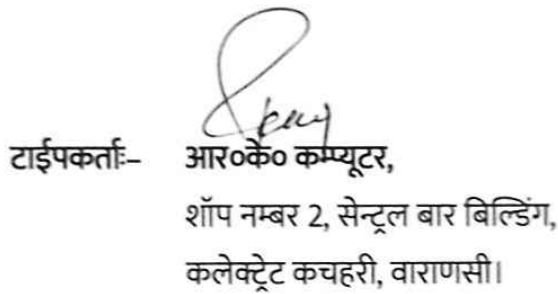 टाईपकर्ताः– आर०के० कम्प्यूटर,
शॉप नम्बर 2, सेन्ट्रल बार बिल्डिंग,
कलेक्ट्रेट कचहरी, वाराणसी।